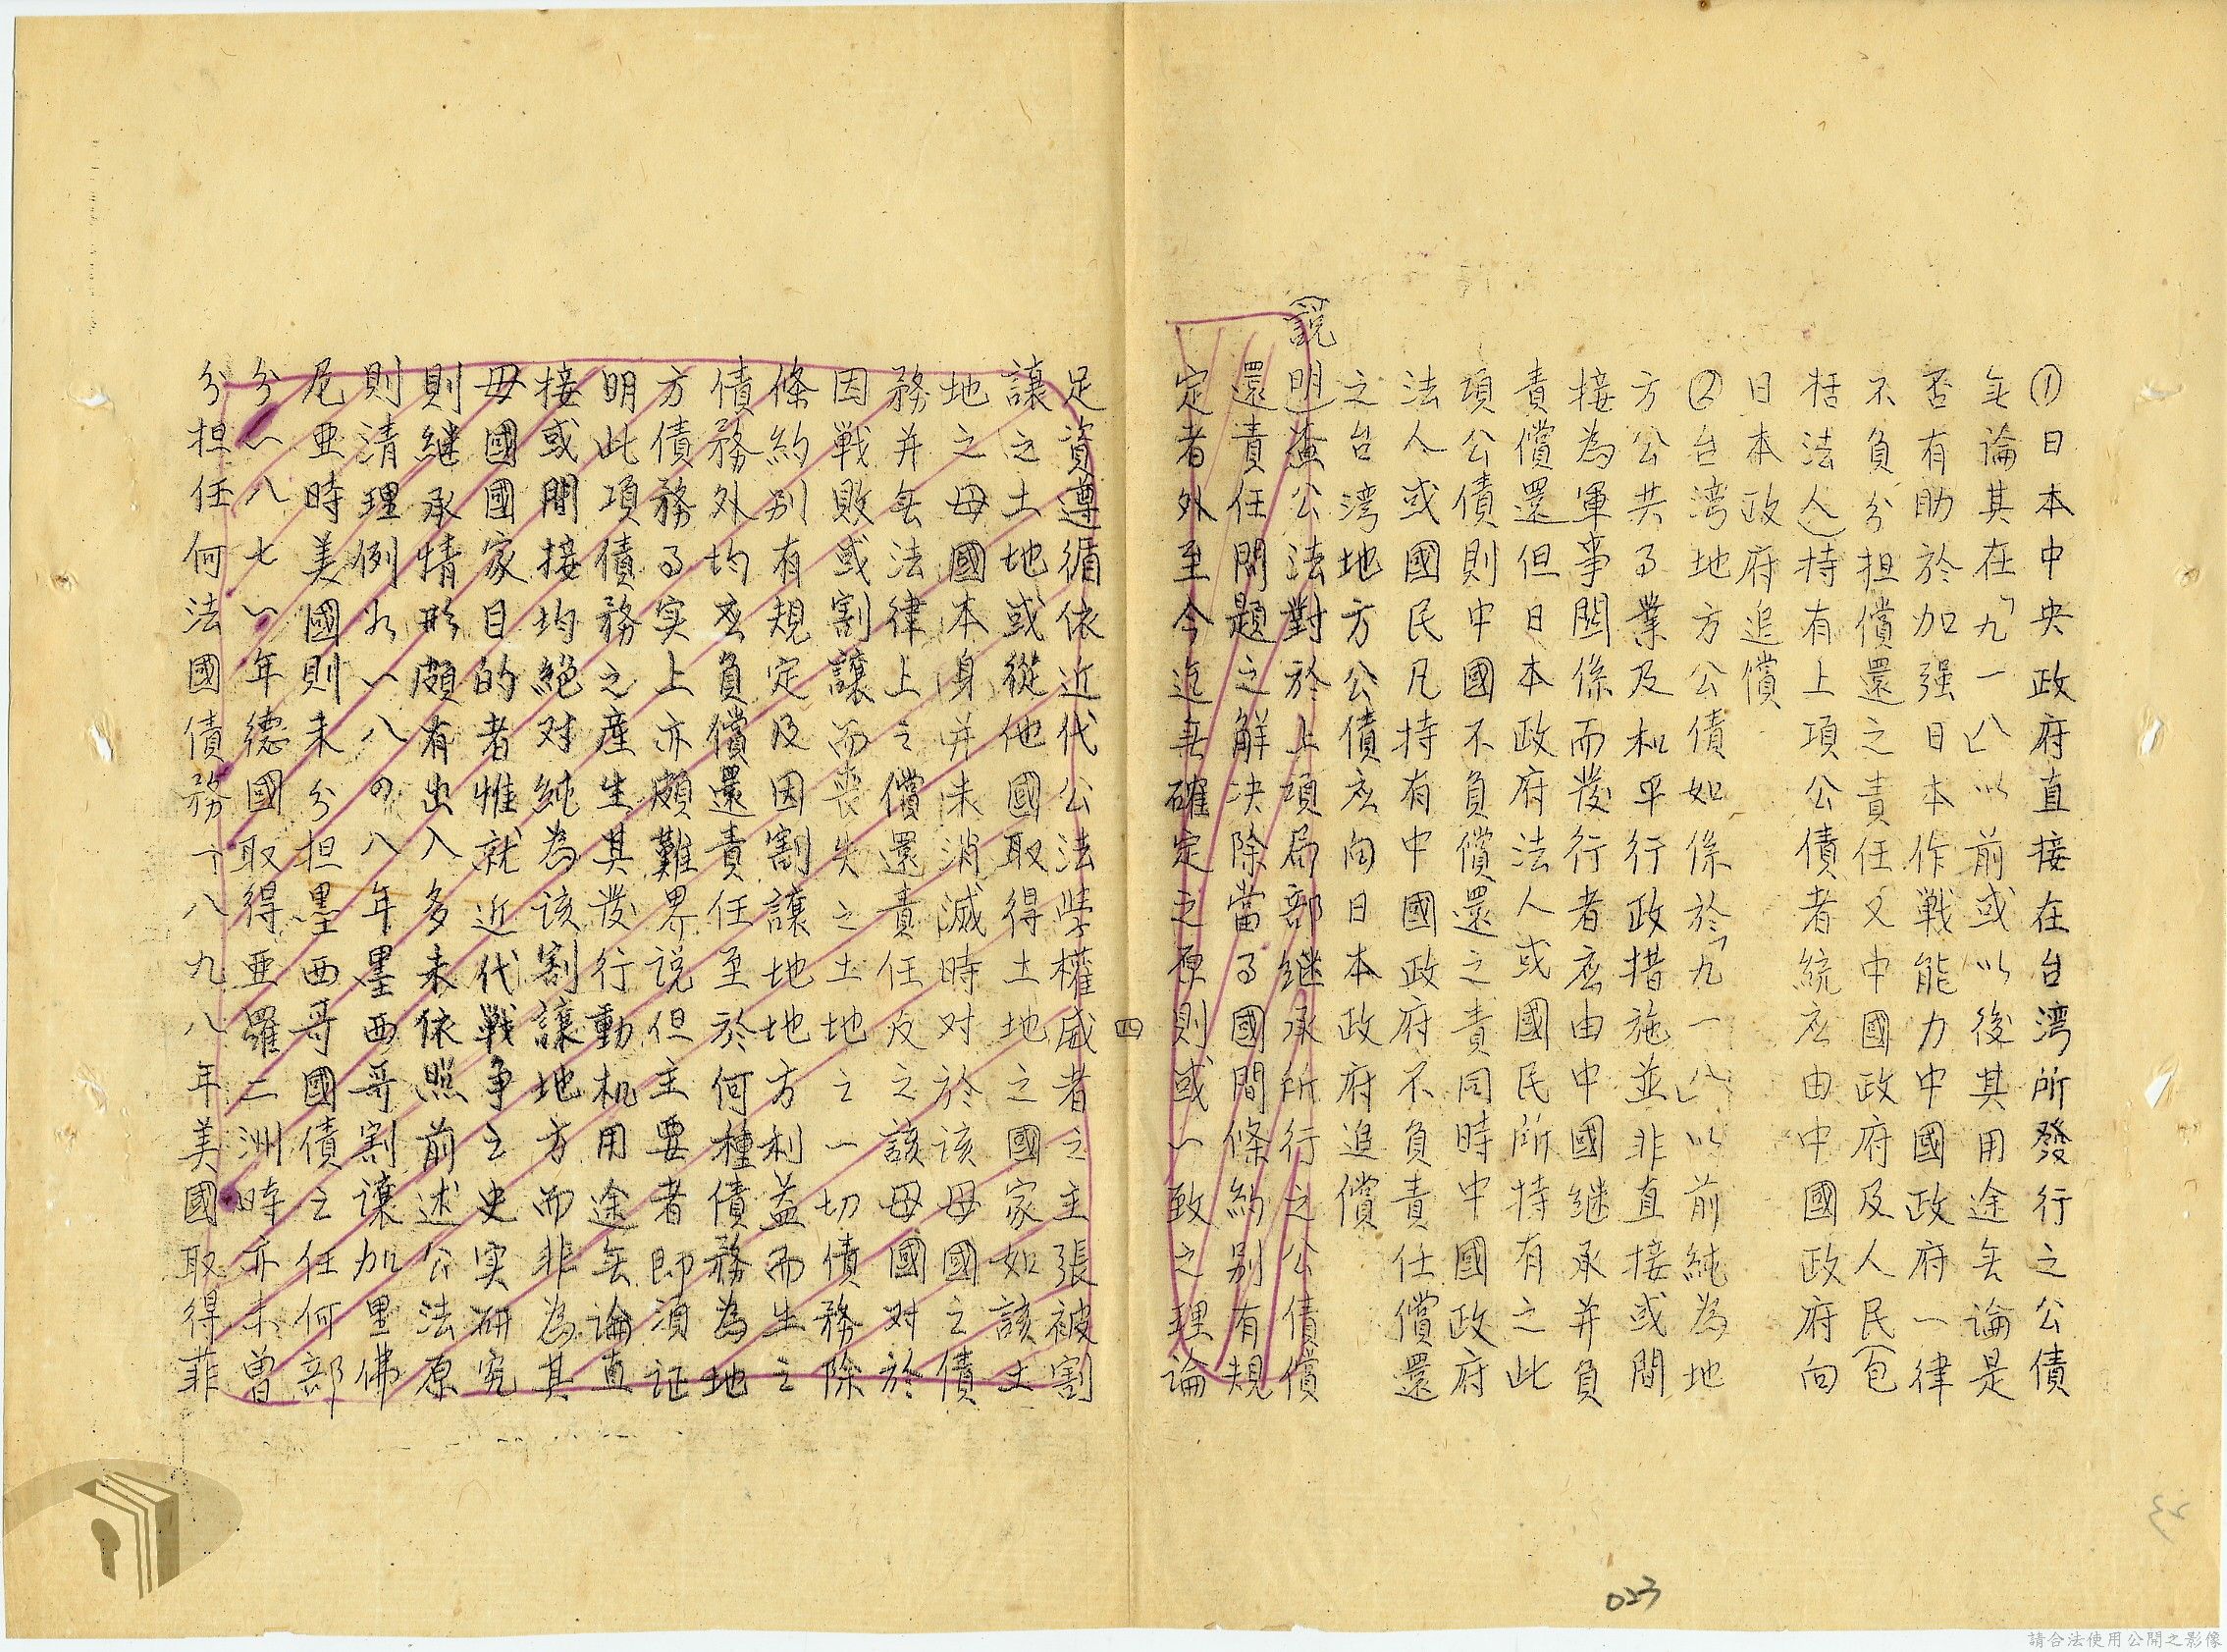 ①日本中央政府直接在台湾所發行之公債
无論其在「九一八」以前或以後其用途无論是
否有助於加强日本作戰能力中國政府一律
不負分担償還之責任又中國政府及人民(包
括法人)持有上項公債者統应由中國政府向
日本政府追償
②台湾地方公債如係於「九一八」以前純為地
方公共事業及和平行政措施並非直接或間
接為軍事関係而發行者应由中國継承并負
責償還但日本政府法人或國民所持有之此
項公債則中國不負償還之責同時中國政府
法人或國民凡持有中國政府不負責任償還
之台湾地方公債应向日本政府追償
(説明)蓋公法對於上項局部継承所行之公債償
還責任問題之解决除當事國間條約别有規
定者外至今迄无確定之原則或一致之理論
四
足資遵循依近代公法學權威者之主張被割
讓之土地或從他國取得土地之國家如該土
地之母國本身并未消滅時对於該母國之債
務并无法律上之償還責任及之該母國对於
因戰敗或割讓而喪失之土地之一切債務除
條約别有規定及因割讓地地方利益而生之
債務外均应負償還責任至於何種債務為地
方債務事实上亦頗難界説但主要者即須証
明此項債務之産生其發行動机用途无論直
接或間接均絕对純為該割讓地方而非為其
母國國家目的者惟就近代戰争之史实研究
則継承情形頗有出入多未依照前述公法原
則清理例如一八四八年墨西哥割讓加里佛
尼亜時美國則未分担墨西哥國債之任何部
分一八七一年德國取得亜羅二洲時亦未曾
分担任何法國債務一八九八年美國取得菲
023
請合法使用公開之影像